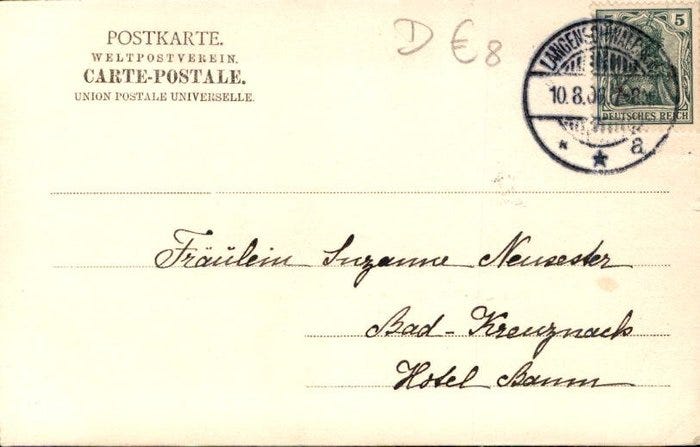 POSTKARTE.
WELTPOSTVEREIN.
CARTE-POSTALE.
UNION POSTALE UNIVERSELLE.
D €8
5 5
DEUTSCHES REICH
LANGENSCHWALB
10.8.06 7-8
a
Fräulein Suzanne Neusester
Bad-Kreuznach
Hotel Baum